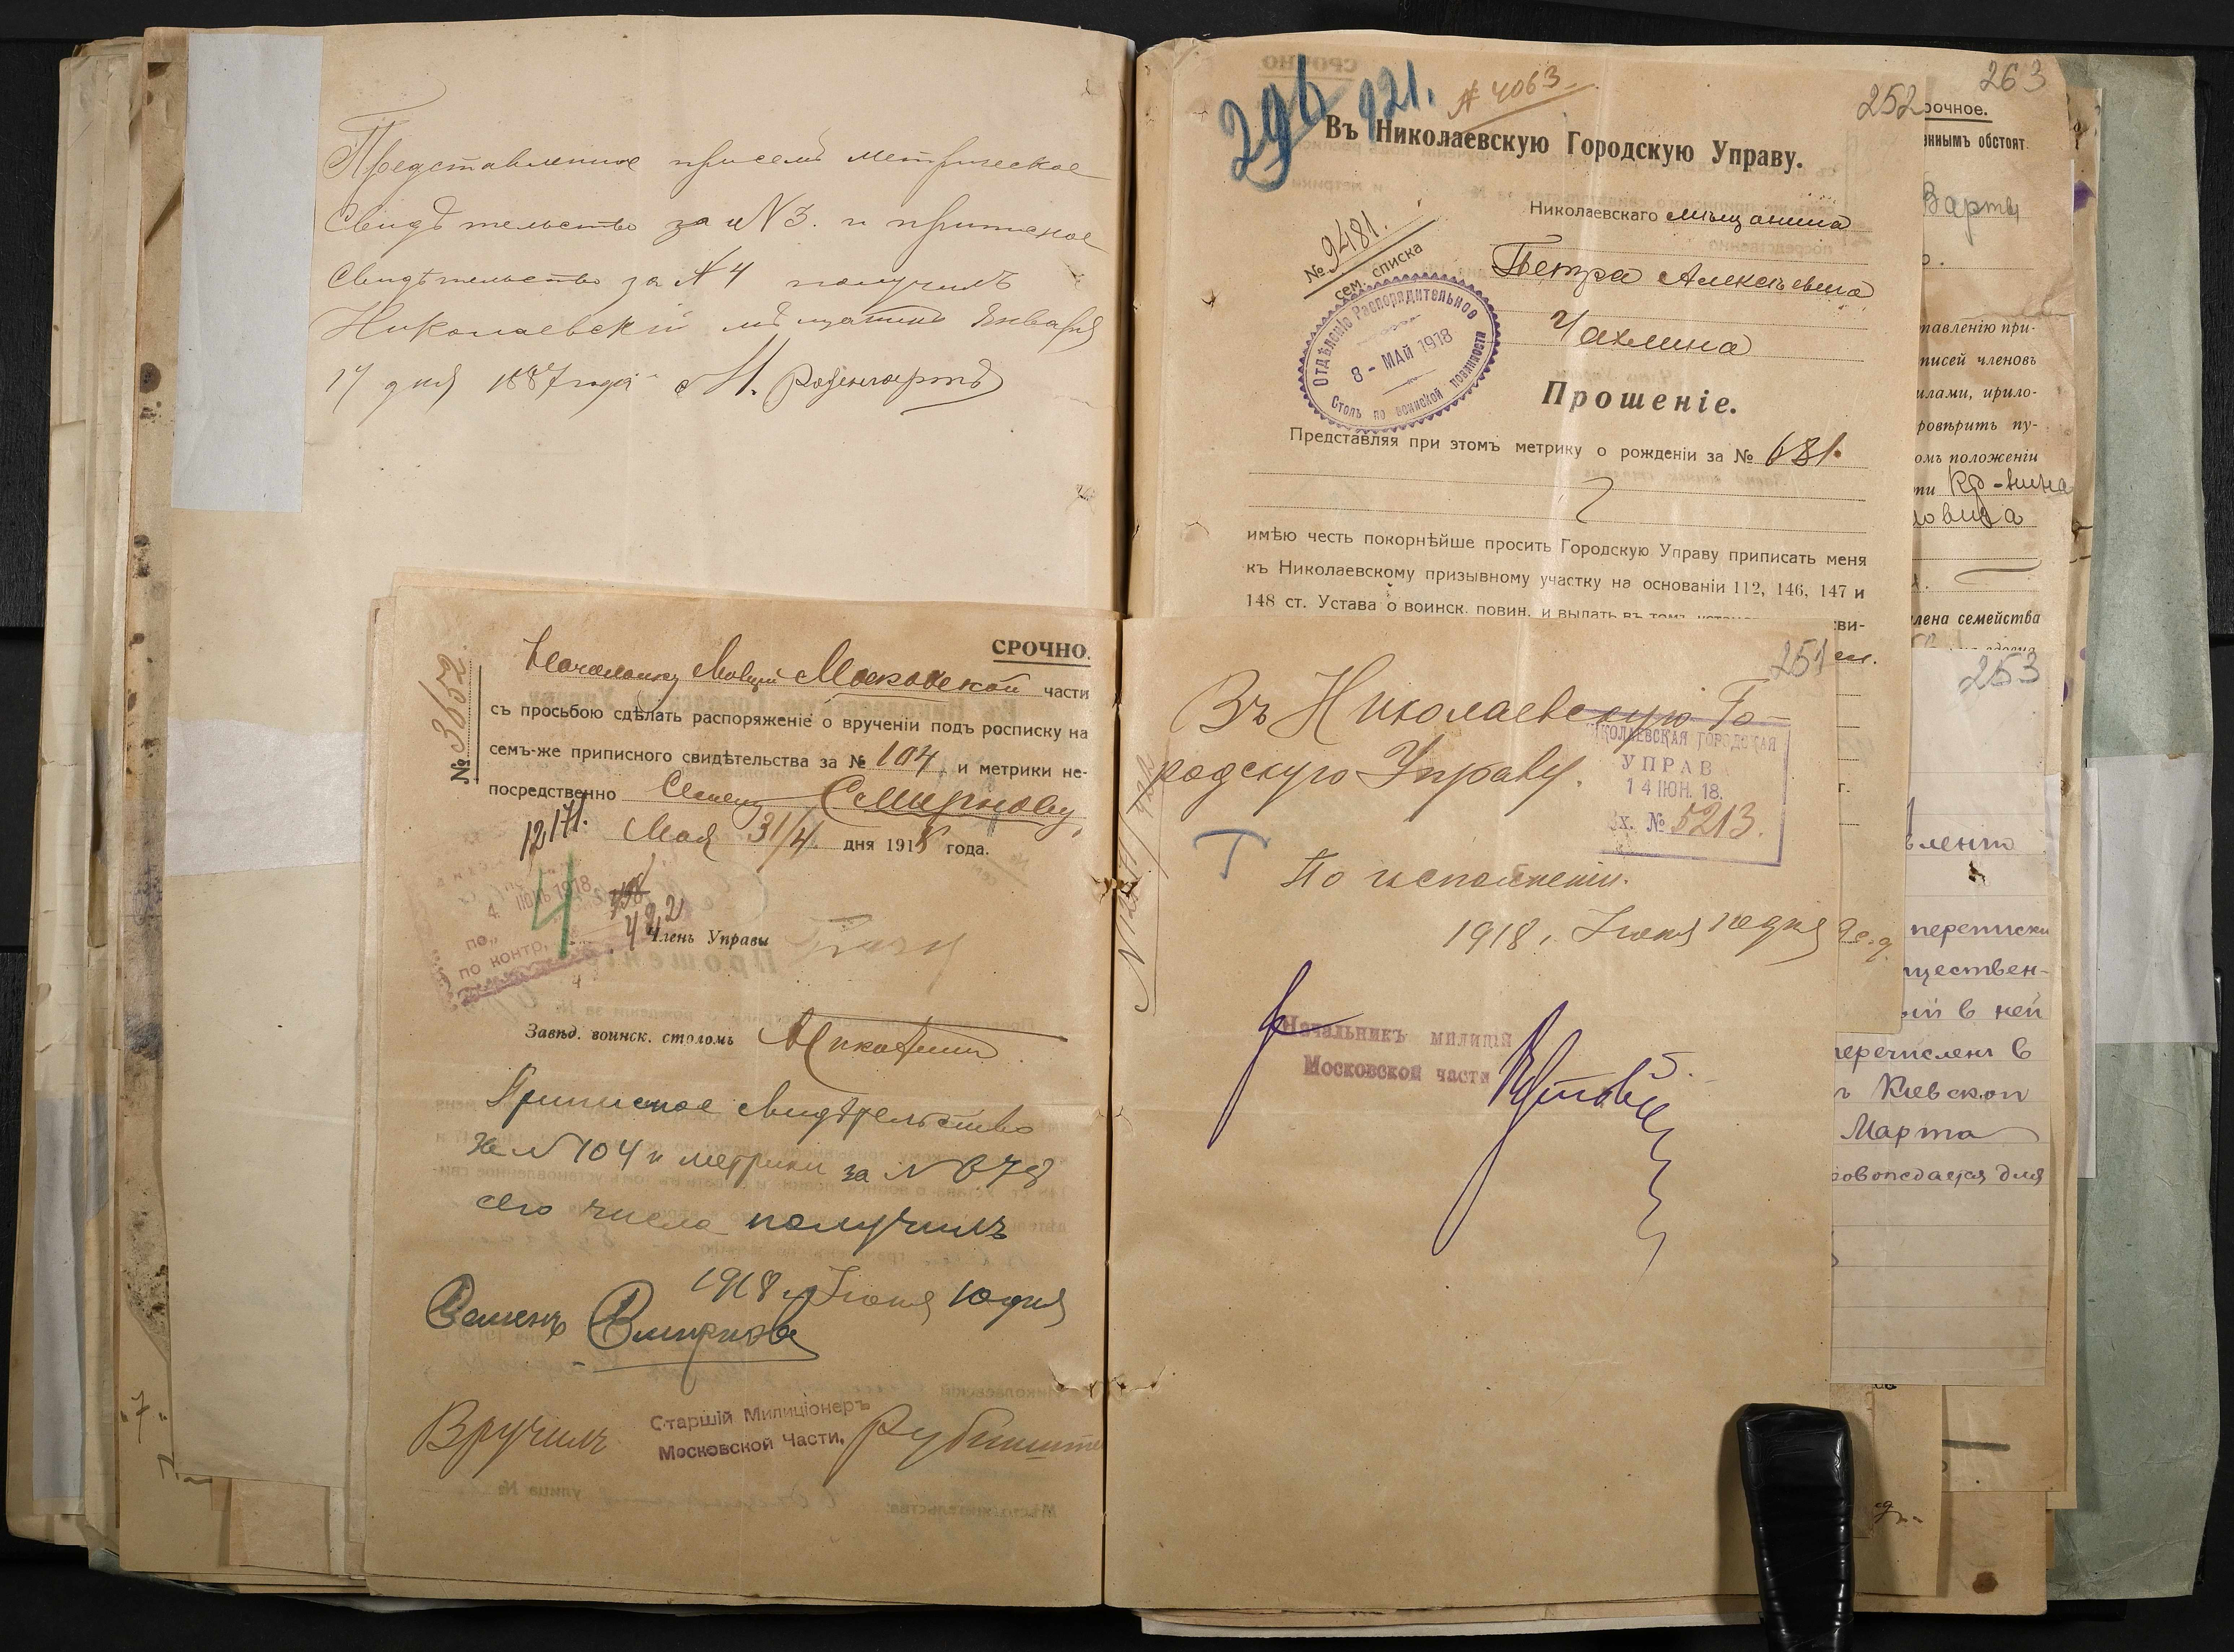 Представленное при семъ метрическое
Свидѣтельство за № 3. и приписное
Свидѣтельство за № 4 получилъ
Николаевскій мѣщанинъ Января
17 дня 1887 года М.
СРОЧНО.
№ 3652
Начальнику Милиціи Московской части
съ просьбою сдѣлать распоряженіе о врученіи подъ росписку на
семъ-же приписного свидѣтельства за № 104 и метрики не-
посредственно Семену Смирнову,
12171.
Мая 31/4 дня 1918 года.
4. ІЮНЬ 1918
4
422
Членъ Управы
по контр.
Завѣд. воинск. столомъ
Приписное свидѣтельство
за № 104 и метрики за № 678
сего числа получилъ
1918 г. Іюня 10 дня
Семенъ Смирновъ
Вручилъ Старшій Милиціонеръ
Московской Части,
улица №
Мѣстожительства:
296
121.
№ 4063
252
Въ Николаевскую Городскую Управу.
Николаевскаго мѣщанина
№ 9481.
сем. списка
Петра Алексѣевича
Чахлина
Отдѣленіе Распорядительное
8 - МАЙ 1918
Столъ по воинской повинности
Прошеніе.
Представляя при этомъ метрику о рожденіи за № 681.
имѣю честь покорнѣйше просить Городскую Управу приписать меня
къ Николаевскому призывному участку на основаніи 112, 146, 147 и
148 ст. Устава о воинск. повин. и выдать въ томъ
251
Въ Николаевскую Го-
родскую Управу.
НИКОЛАЕВСКАЯ ГОРОДСКАЯ
УПРАВА
14 ІЮН. 18.
Вх. № 5213.
Т
По исполненіи.
1918 г. Іюня 10 дня
№ 12171/422
Начальникъ милиціи
Московской части
263
рочное.
ннымъ обстоят
Варты
тавленію при-
писей членовъ
илами, прило-
ровѣрить пу-
омъ положеніи
ти Кр-нина
овича
лена семейства
253
вленію
переписки
ществен-
ый в ней
перечислен в
Киевской
Марта
ровождается для